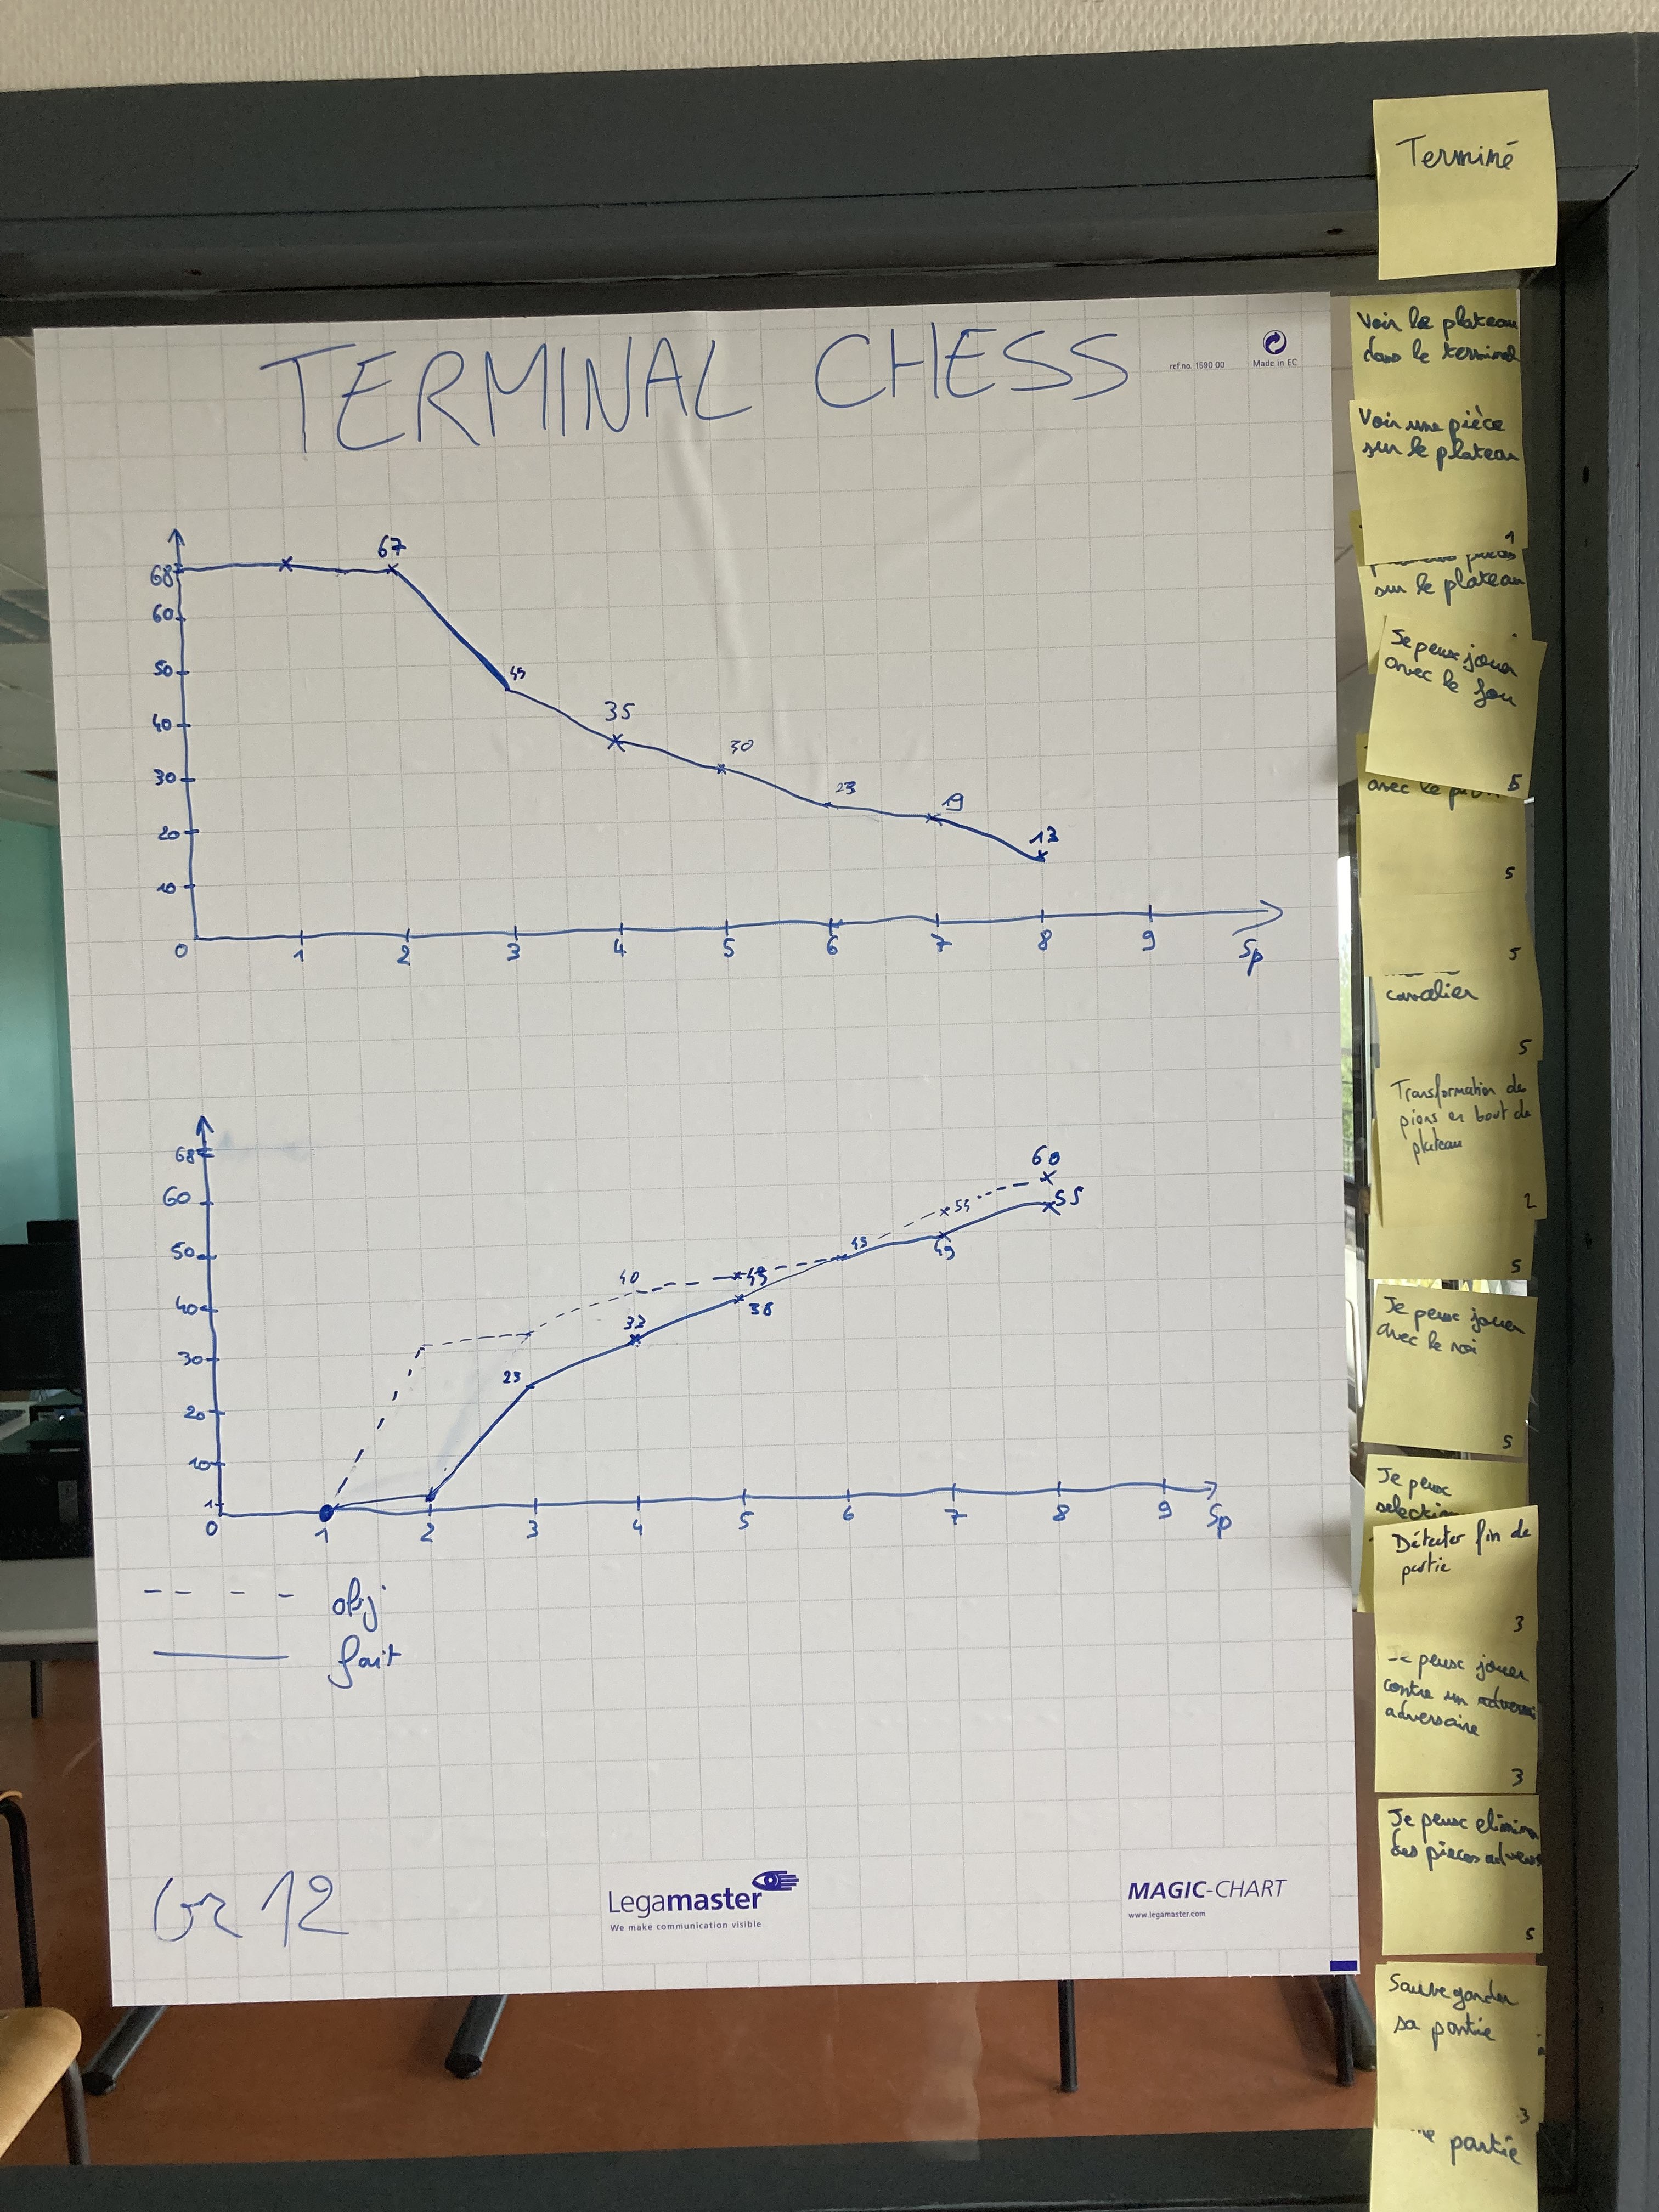 Terminé
TERMINAL CHESS
ref.no. 1590 00
Made in EC
67
68
60
50
45
40
35
30
30
23
20
19
13
10
0 1 2 3 4 5 6 7 8 9 Sp
68
60
60
55
55
50
45
49
40
40
43
38
33
30
23
20
10
1
0 1 2 3 4 5 6 7 8 9 Sp
obj
fait
Gr 12
Legamaster
We make communication visible
MAGIC-CHART
www.legamaster.com
Voir le plateau
dans le terminal
Voir une pièce
sur le plateau
1
pièces
sur le plateau
Je peux jouer
avec le fou
5
avec le pion
5
5
cavalier
5
Transformation de
pions en bout de
plateau
2
5
Je peux jouer
avec le roi
5
Je peux
selection
Détecter fin de
partie
3
Je peux jouer
contre un
adversaire
3
Je peux elimin
des pieces advers
5
Sauvegarder
sa partie
3
partie